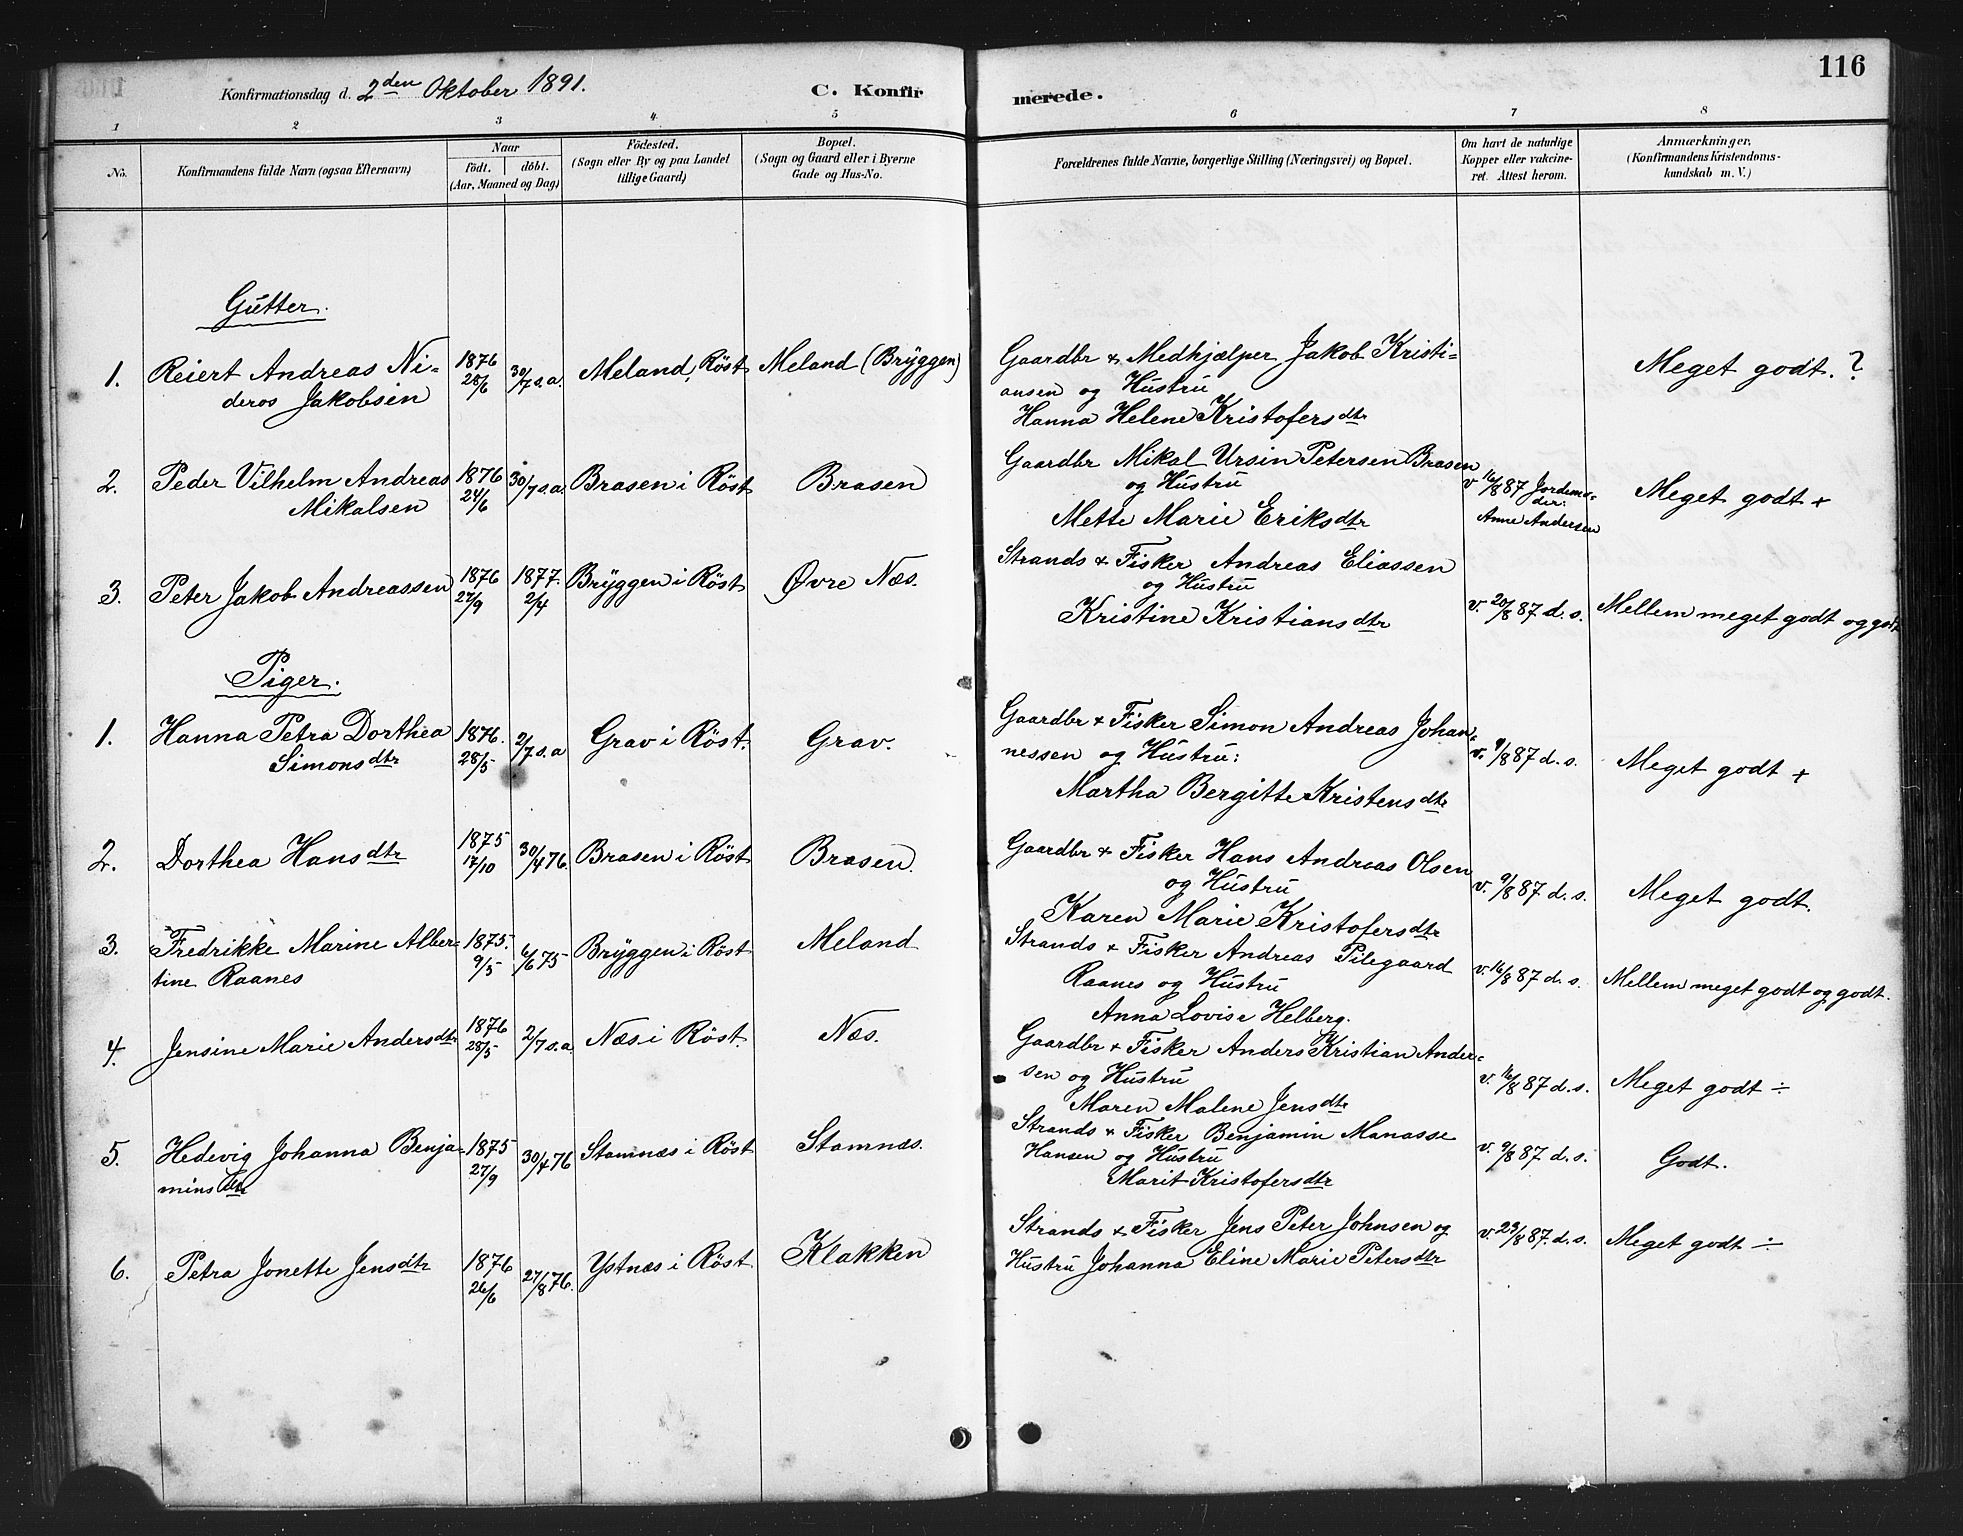 116
Konfirmationsdag d. 2den Oktober 1891.
C. Konfirmerede.
1 2 3 4. 5 6 7 8
No.
Konfirmandens fulde Navn (ogsaa Efternavn)
Naar
födt. döbt.
(Aar, Maaned og Dag)
Födested.
(Sogn eller By og paa Landet
tillige Gaard)
Bopæl.
(Sogn og Gaard eller i Byerne
Gade og Hus-No.
Forældrenes fulde Navne, borgerlige Stilling (Næringsvei) og Bopæl.
Om havt de naturlige
Kopper eller vakcine-
ret. Attest herom.
Anmærkninger,
(Konfirmandens Kristendoms-
kundskab m. V.)
Gutter.
1. Reiert Andreas Ni-
deros Jakobsen
1876
28/6
30/7 s.a.
Meland, Röst
Meland (Bryggen)
Gaardbr & Medhjælper Jakob Kristi-
ansen og Hustru
Hanna Helene Kristofersdtr
Meget godt. ?
2. Peder Vilhelm Andreas
Mikalsen
1876
24/6
30/7 s.a.
Brasen i Röst
Brasen
Gaardbr Mikal Ursin Petersen Brasen
og Hustru
Mette Marie Eriksdtr
v 16/8 87 Jordemo-
der:
Anne Andersen
Meget godt +
3. Peter Jakob Andreassen
1876
27/9
1877.
2/4
Bryggen i Röst
Øvre Næs.
Strands & Fisker Andreas Eliassen
og Hustru
Kristine Kristiansdtr
v. 20/8 87 d. s.
Mellem meget godt og godt
Piger.
1. Hanna Petra Dorthea
Simonsdtr
1876.
28/5
2/7 s.a
Grav i Röst.
Grav.
Gaardbr & Fisker Simon Andreas Johan-
nessen og Hustru:
Martha Bergitte Kristensdtr
v. 9/8 87 d. s.
Meget godt +
2. Dorthea Hansdtr
1875
17/10
30/4 76.
Brasen i Röst
Brasen.
Gaardbr & Fisker Hans Andreas Olsen
og Hustru
Karen Marie Kristofersdtr
v. 9/8 87 d. s.
Meget godt.
3. Fredrikke Marine Alber-
tine Raanes
1875.
9/5
6/6 75
Bryggen i Röst
Meland
Strands & Fisker Andreas Pilegaard
Raanes og Hustru
Anna Lovise Helberg.
v. 16/8 87 d. s.
Mellem meget godt og godt.
4. Jensine Marie Andersdtr
1876
28/5
2/7 s.a.
Næs i Röst.
Næs.
Gaardbr & Fisker Anders Kristian Ander-
sen og Hustru
Maren Malene Jensdtr
v. 16/8 87 d. s.
Meget godt ÷
5. Hedevig Johanna Benja-
minsdtr
1875
27/9
30/4 76
Stamnæs i Röst
Stamnæs.
Strands & Fisker Benjamin Manasse
Hansen og Hustru
Marit Kristofersdtr
v. 9/8 87 d. s.
Godt.
6. Petra Jonette Jensdtr
1876
26/6
27/8 76.
Ystnæs i Röst
Klakken
Strands & Fisker Jens Peter Johnsen og
Hustru Johanna Eline Marie Petersdtr
v. 23/8 87. d. s.
Meget godt ÷